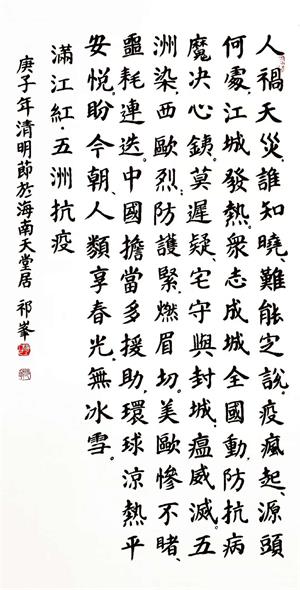 人禍天災、誰知曉、難能定說。疫瘋起、源頭
何處、江城發熱。衆志成城全國動、防抗病
魔決心銕。莫遲疑、宅守與封城、瘟威滅。五
洲染、西歐烈。防護緊、燃眉切。美歐慘不睹、
噩耗連迭。中國擔當多援助、環球涼熱平
安悅。盼今朝、人類享春光、無冰雪。
滿江紅·五洲抗疫
庚子年清明節於海南天堂居 祁峯